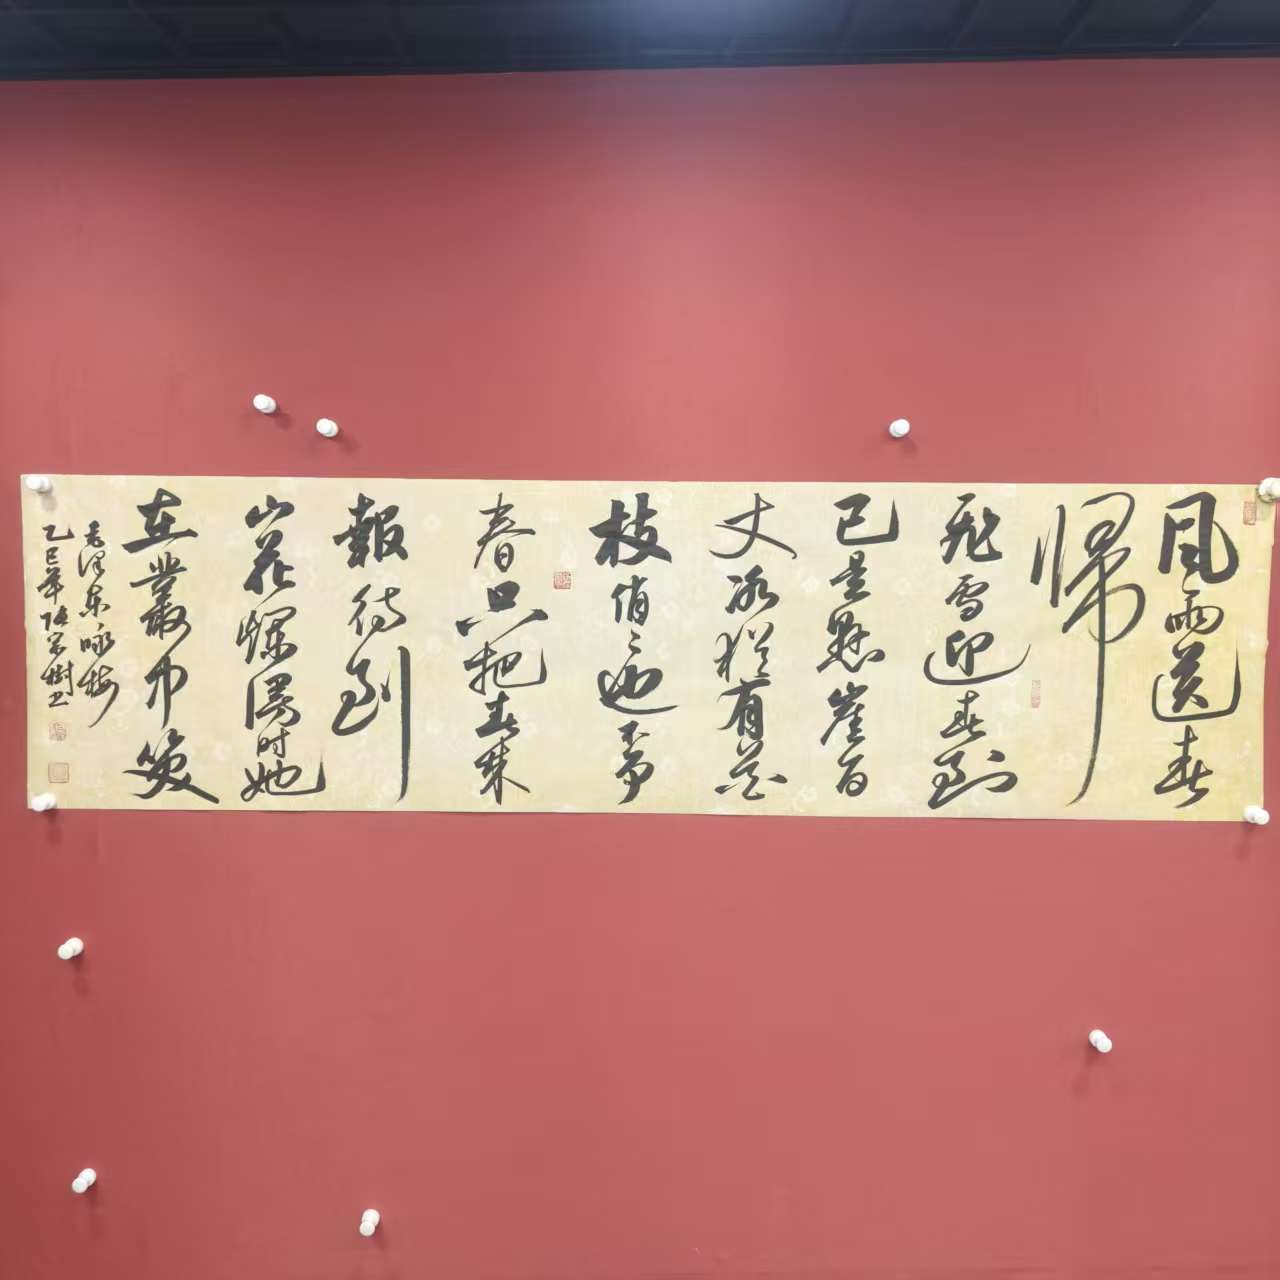 風雨送春
帰
飛雪迎春到
已是懸崖百
丈冰猶有花
枝俏〻也不爭
春只把春来
報待到
山花爛漫时她
在叢中笑
毛澤东咏梅
乙巳年 樹书